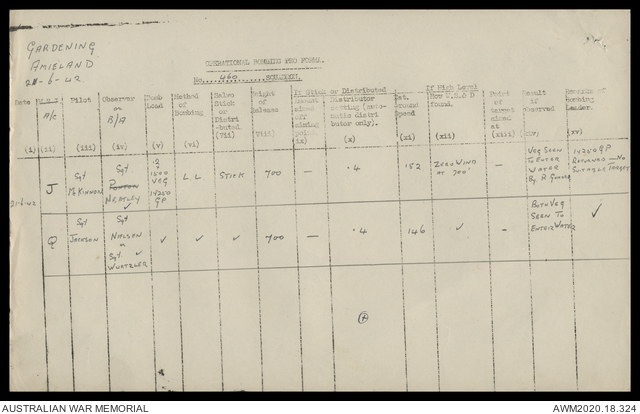 GARDENING
AMIELAND
21-6-42
OPERATIONAL BOMBING PRO FORMA.
No. 460 SQUADRON.
Date
A/C
Pilot
Observer or B/A
Bomb Load
Method of Bombing
Salvo Stick or Distributed.
Height of Release
If Stick or Distributed
Amount aimed off aiming point.
Distributor setting (automatic distributor only).
Est. ground speed
If High Level
How U.S.& D found.
Point of target aimed at
Result if observed.
Remarks of Bombing Leader.
(i) (ii) (iii) (iv) (v) (vi) (vii) (viii) ix (x) (xi) (xii) (xiii) (xv)
21-6-42
J
Sgt McKinnon
Sgt Heatley ✓
2 1500 VEG 14250 GP
L L
STICK
700
—
.4
152
ZERO WIND AT 700'
—
VEG SEEN TO ENTER WATER BY R. GUNNER
14250 GP RETURNED — NO SUITABLE TARGET
Q
Sgt JACKSON
Sgt
Sgt ✓
✓
✓
✓
700
—
.4
146
✓
—
BOTH VEG SEEN TO ENTER WATER
✓
AUSTRALIAN WAR MEMORIAL
AWM2020.18.324